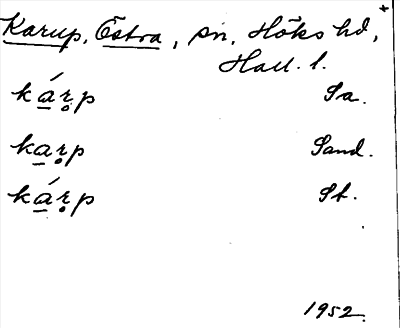 Karup, Östra, sn, Höks hd,
Hall. l.
ká̱r̥p Sa.
ka̱r̥p Sand.
ká̱r̥p St.
1952.